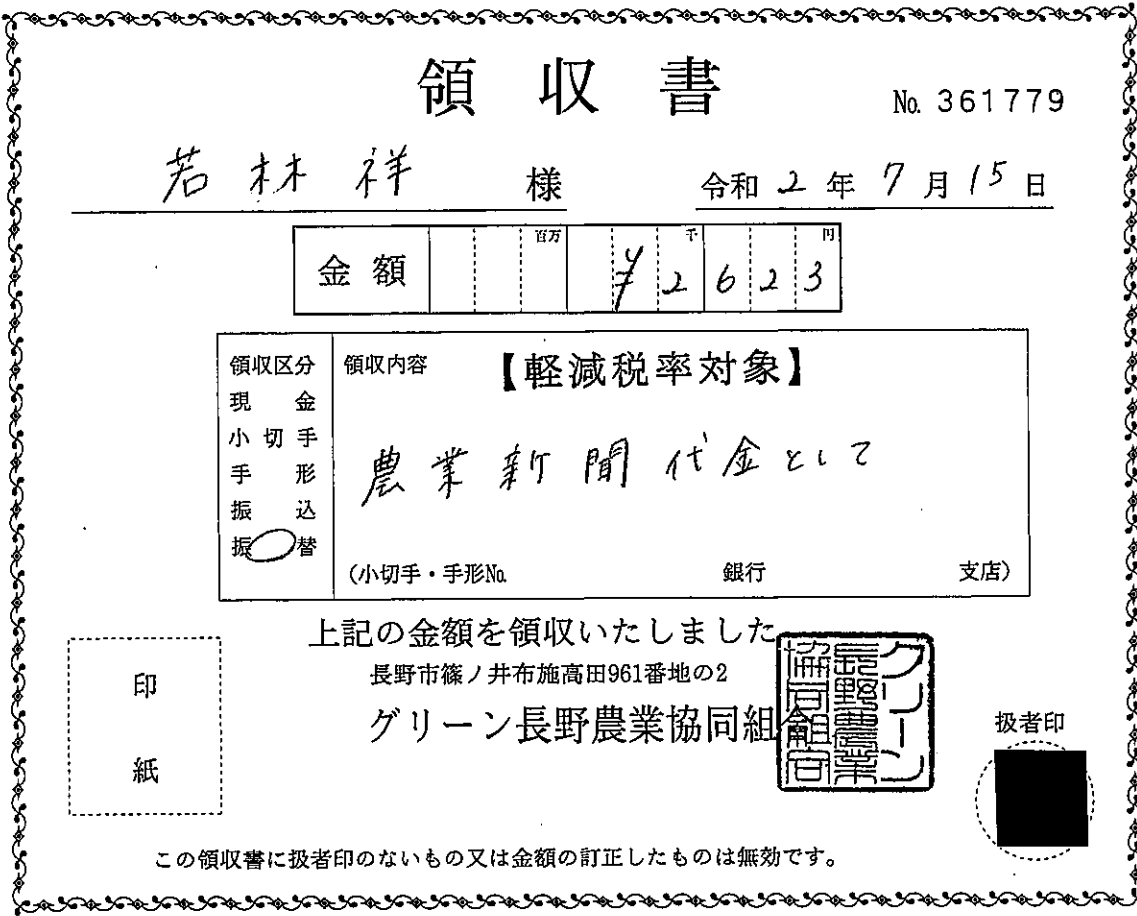 領収書
No. 361779
若林祥 様
令和 2 年 7 月 15 日
金額 百万 千 円
¥2623
領収区分
現金
小切手
手形
振込
振替
領収内容 【軽減税率対象】
農業新聞代金として
(小切手・手形No. 銀行 支店)
上記の金額を領収いたしました
長野市篠ノ井布施高田961番地の2
グリーン長野農業協同組合
グリーン
長野農業
協同組合
印
紙
扱者印
この領収書に扱者印のないもの又は金額の訂正したものは無効です。